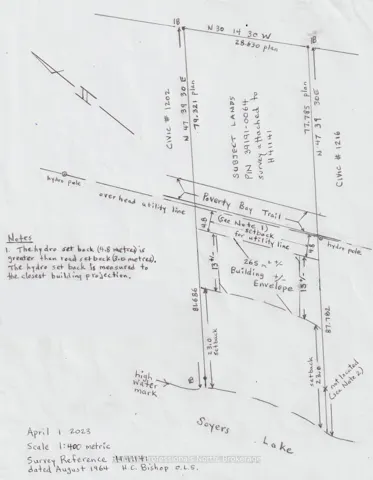 IB
N 30 14 30 W
28.630 plan
IB
CIVIC # 1202
N 47 39 30 E
79.321 plan
SUBJECT LANDS
PIN 39191-0064
survey attached to
H41141
72.785 plan
N 47 39 30E
CIVIC # 1216
hydro pole
overhead utility line
Poverty Bay Trail
(See Note 1)
setback
for utility line
4.8
4.8
hydro pole
Notes
1. The hydro set back (4.8 metres) is
greater than road set back (3.0 metres).
The hydro set back is measured to
the closest building projection.
13 +/-
265 m² +/-
Building
Envelope
13 +/-
82.686
23.0
setback
87.782
setback
23.0
not located
(see Note 2)
high
water
mark
IB
Soyers
Lake
April 1 2023
Scale 1:400 metric
Survey Reference
dated August 1964 H.C. Bishop O.L.S.